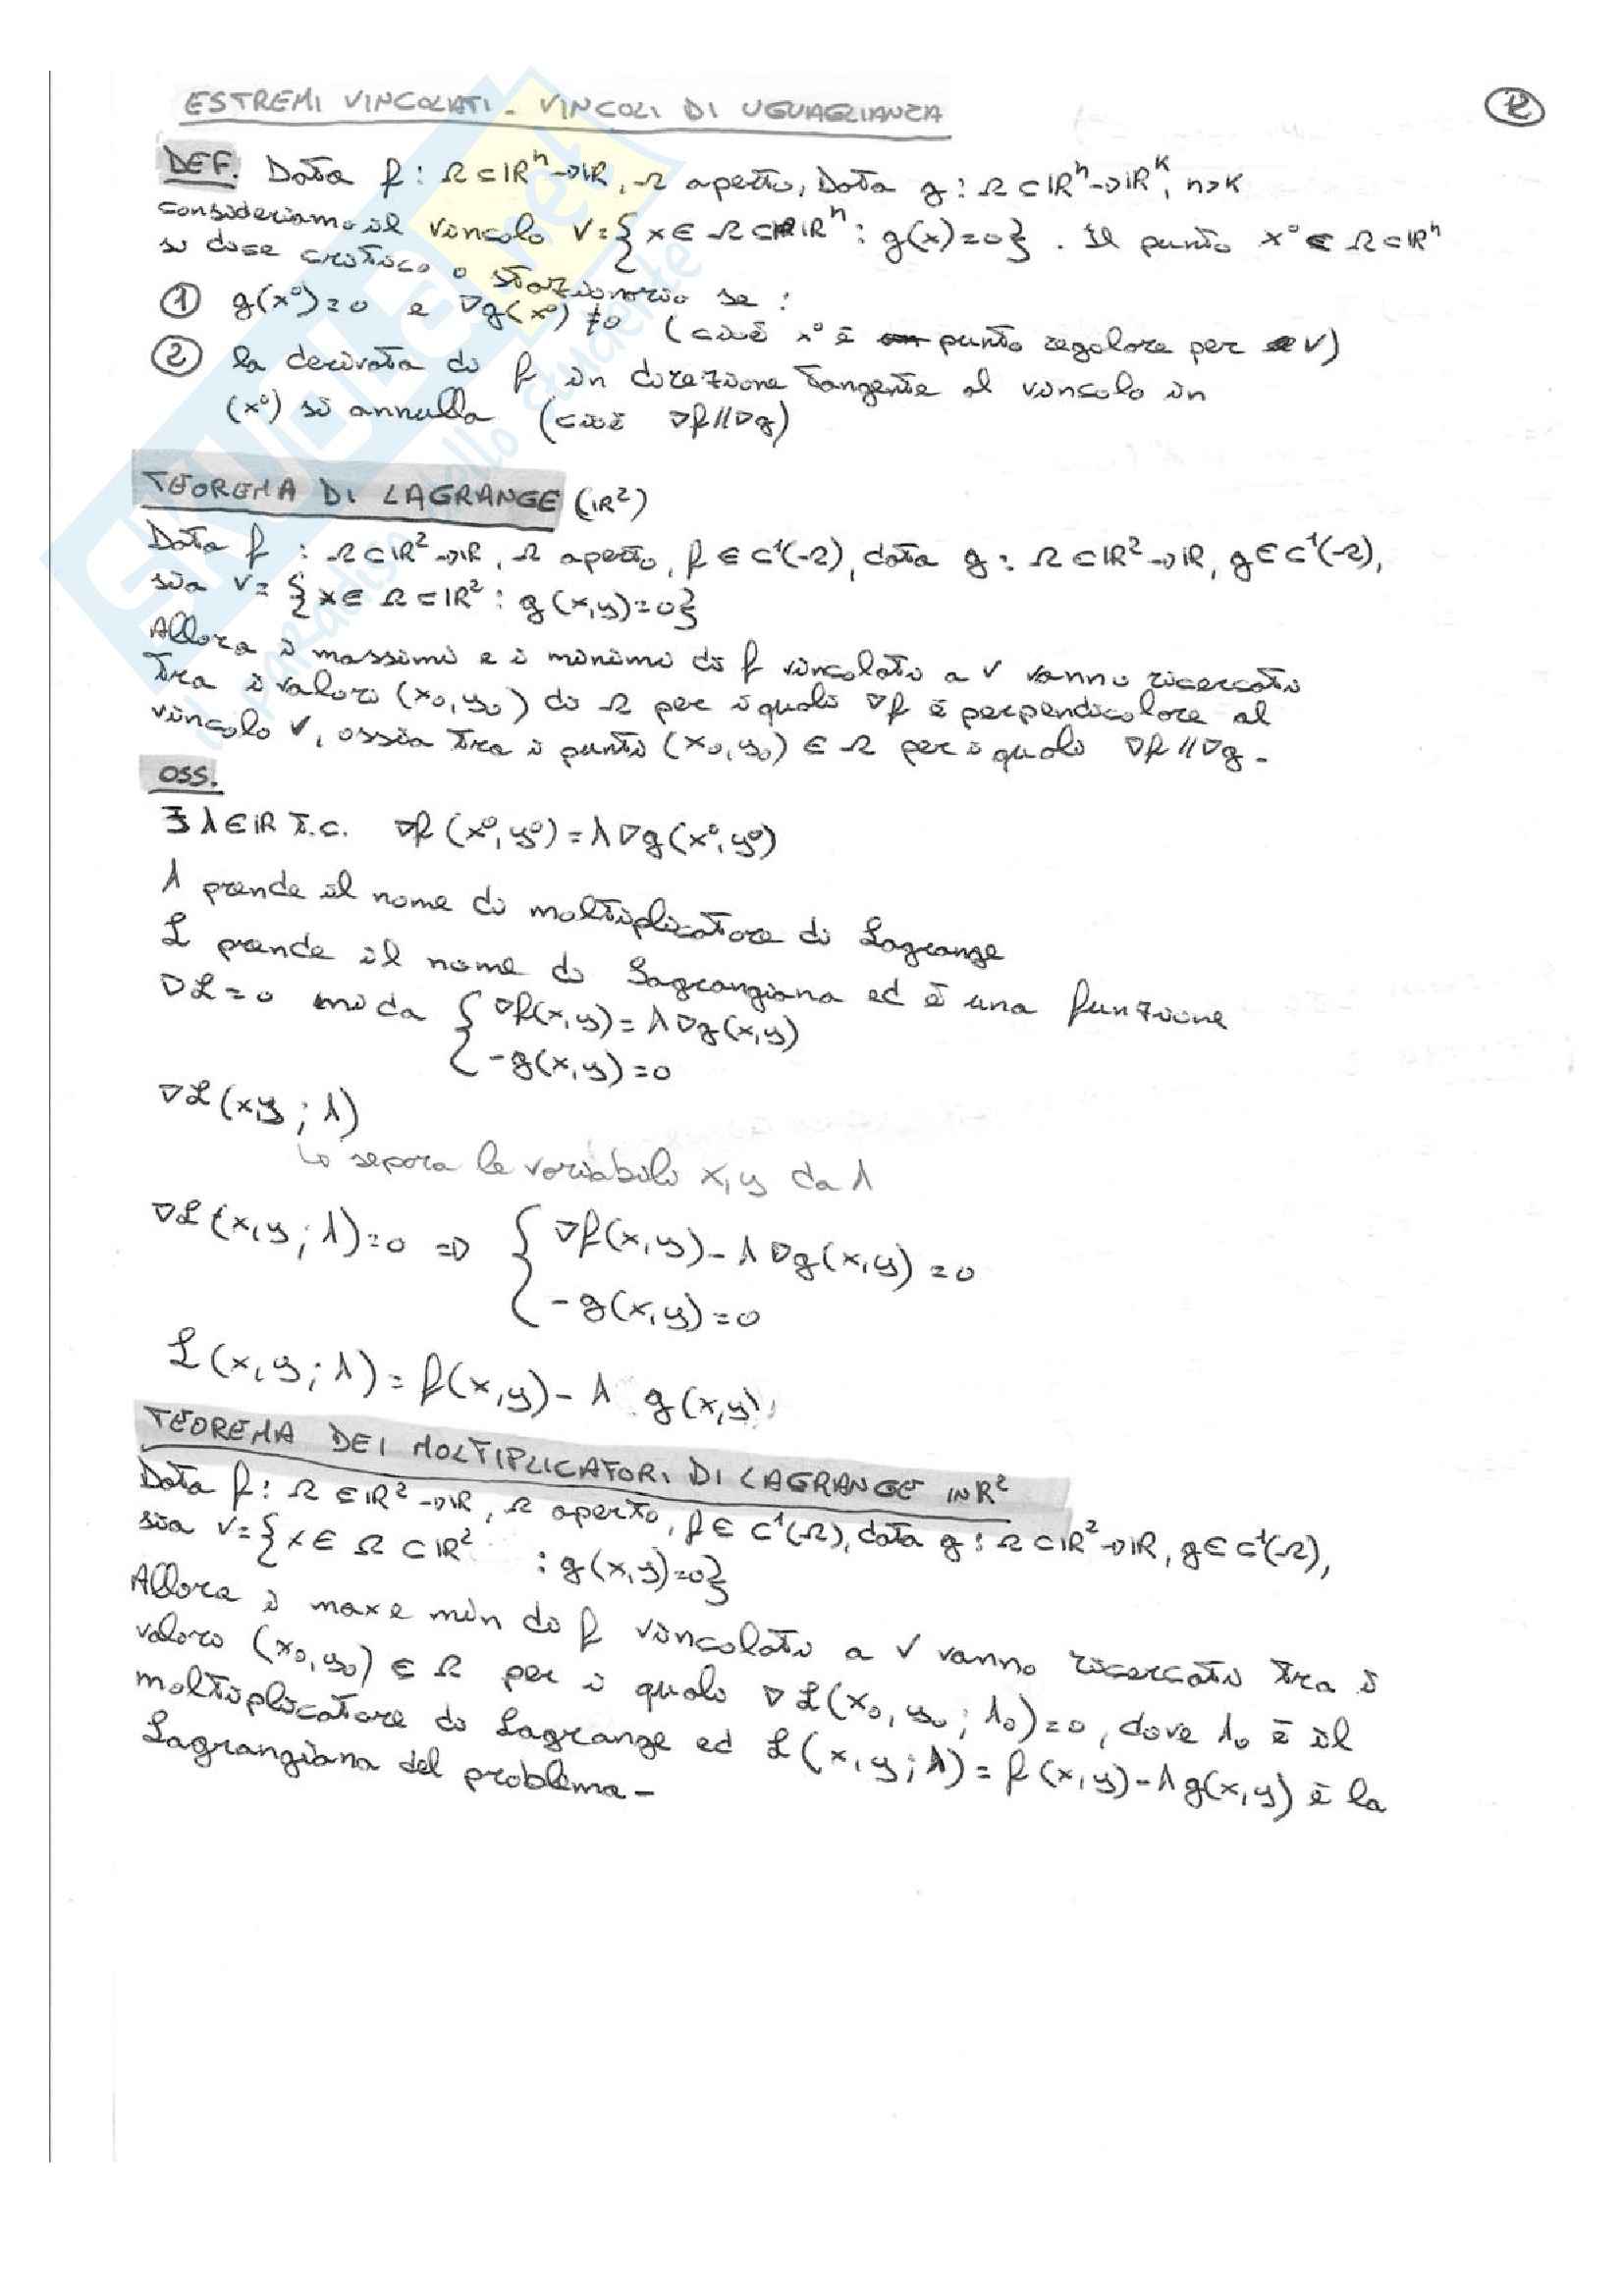 ESTREMI VINCOLATI - VINCOLI DI UGUAGLIANZA
DEF. Data f: Ω⊂ℝⁿ→ℝ, Ω aperto, Data g: Ω⊂ℝⁿ→ℝᴷ, n>K
consideriamo il vincolo V={x∈Ω⊂ℝⁿ: g(x)=0}. Il punto x°∈Ω⊂ℝⁿ
si dice critico o stazionario se:
① g(x°)=0 e ∇g(x°)≠0 (cioè x° è punto regolare per V)
② la derivata di f in direzione tangente al vincolo in
(x°) si annulla (cioè ∇f//∇g)
TEOREMA DI LAGRANGE (ℝ²)
Data f: Ω⊂ℝ²→ℝ, Ω aperto, f∈C¹(Ω), data g: Ω⊂ℝ²→ℝ, g∈C¹(Ω),
sia V={x∈Ω⊂ℝ²: g(x,y)=0}
Allora i massimi e i minimi di f vincolati a V vanno ricercati
tra i valori (x₀,y₀) di Ω per i quali ∇f è perpendicolare al
vincolo V, ossia tra i punti (x₀,y₀)∈Ω per i quali ∇f//∇g.
OSS.
∃λ∈ℝ t.c. ∇f(x°,y°)=λ∇g(x°,y°)
λ prende il nome di moltiplicatore di Lagrange
ℒ prende il nome di Lagrangiana ed è una funzione
∇ℒ=0 mi da { ∇f(x,y)=λ∇g(x,y)
-g(x,y)=0
∇ℒ(x,y;λ)
↳ separa le variabili x,y da λ
∇ℒ(x,y;λ)=0 ⇒ { ∇f(x,y)-λ∇g(x,y)=0
-g(x,y)=0
ℒ(x,y;λ)=f(x,y)-λ g(x,y)
TEOREMA DEI MOLTIPLICATORI DI LAGRANGE IN ℝ²
Data f: Ω∈ℝ²→ℝ, Ω aperto, f∈C¹(Ω), data g: Ω⊂ℝ²→ℝ, g∈C¹(Ω),
sia V={x∈Ω⊂ℝ² : g(x,y)=0}
Allora i max e min di f vincolati a V vanno ricercati tra i
valori (x₀,y₀)∈Ω per i quali ∇ℒ(x₀,y₀;λ₀)=0, dove λ₀ è il
moltiplicatore di Lagrange ed ℒ(x,y;λ)=f(x,y)-λg(x,y) è la
Lagrangiana del problema-